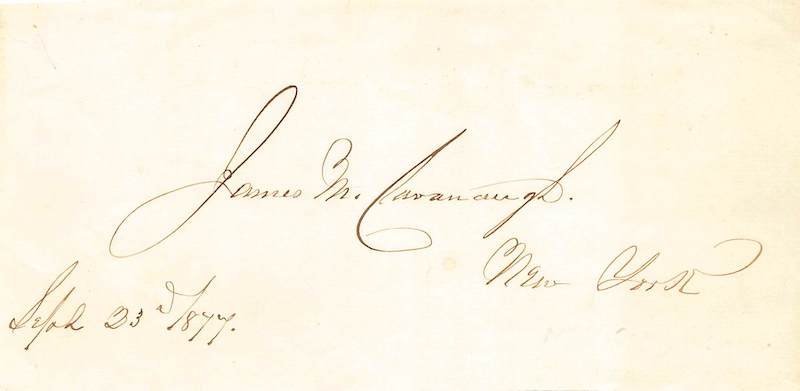 James M. Cavanaugh.
New York
Sept 23d 1877.